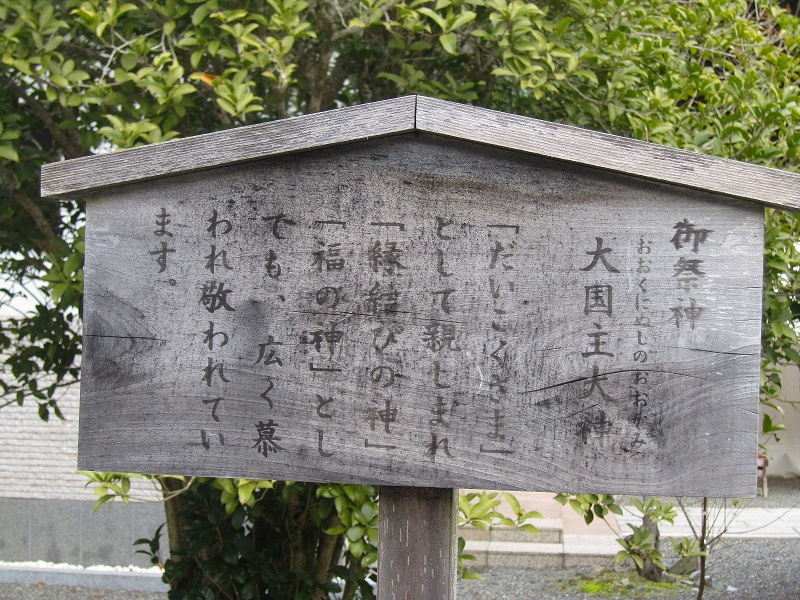 御祭神
おおくにぬしのおおかみ
大国主大神
「だいこくさま」
として親しまれ
「縁結びの神」
「福の神」とし
でも、広く慕
われ敬われてい
ます。